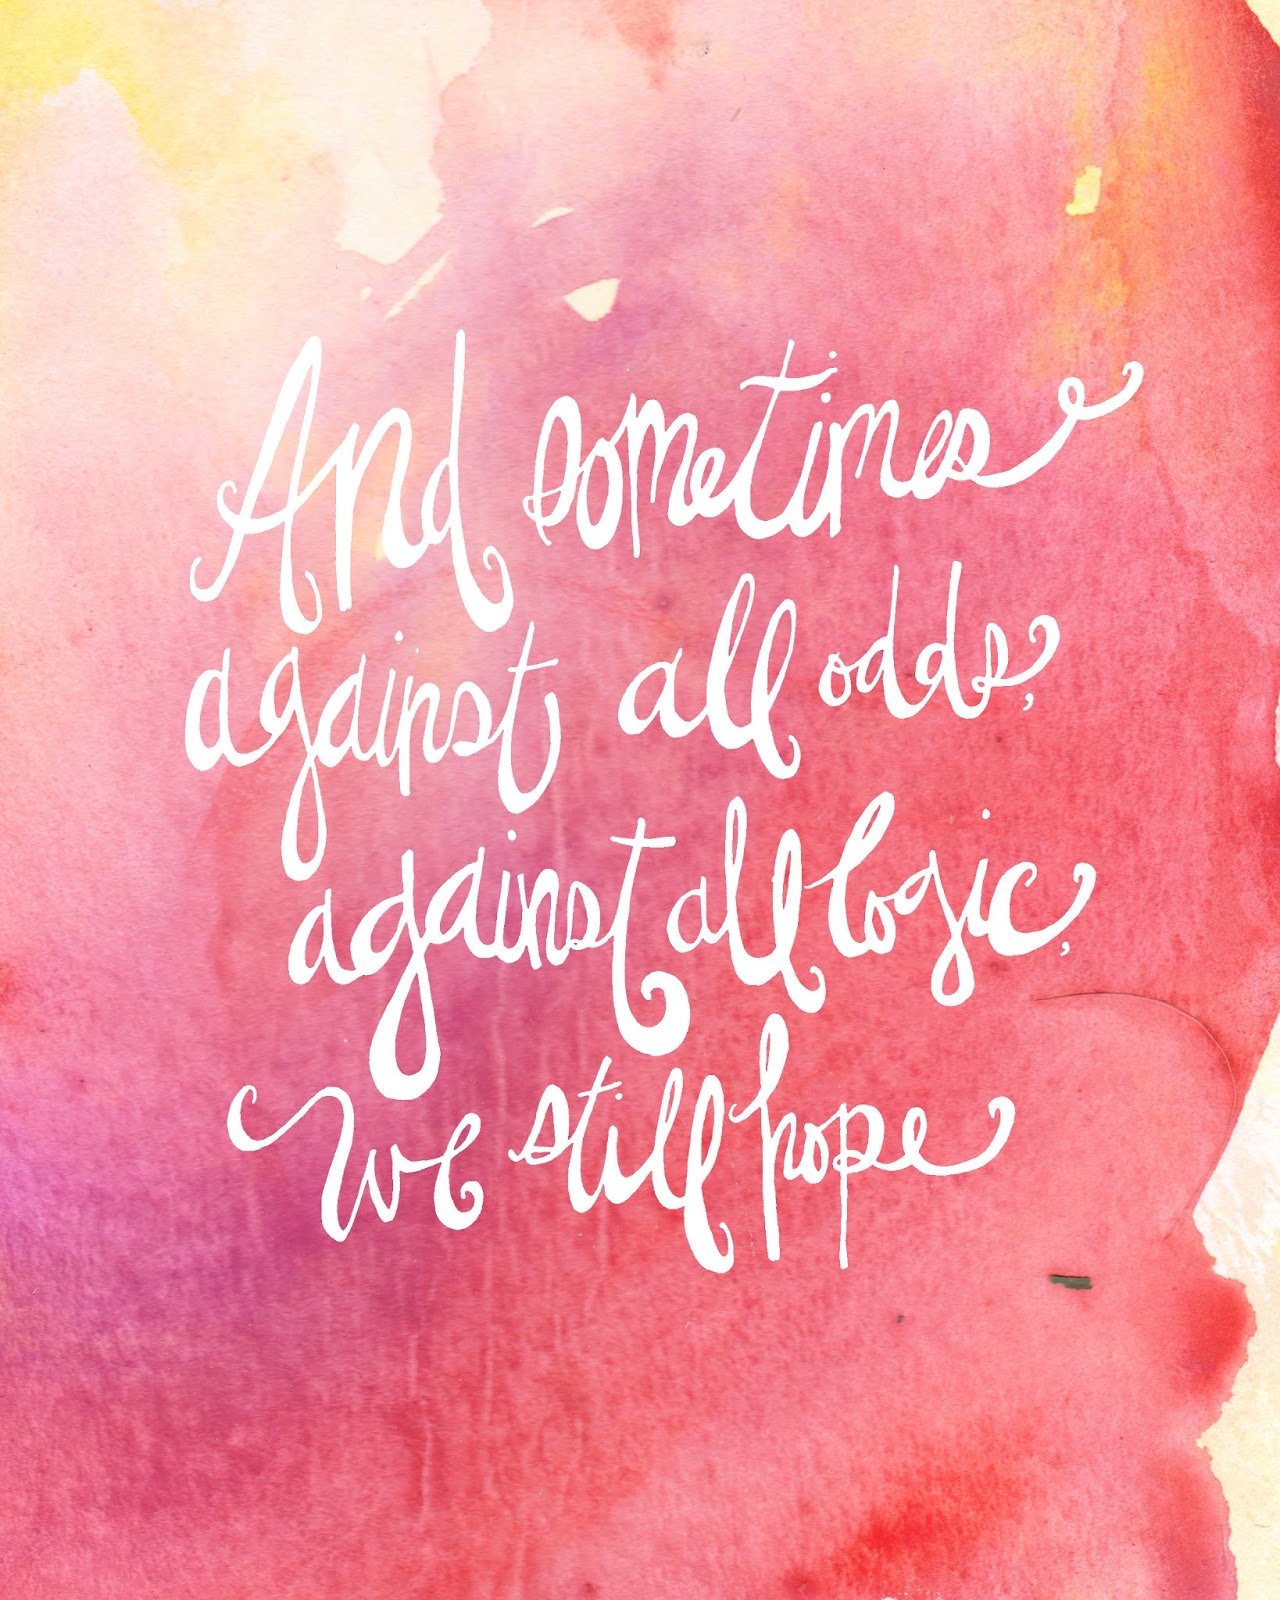 And sometimes
against all odds,
against all logic,
We still hope